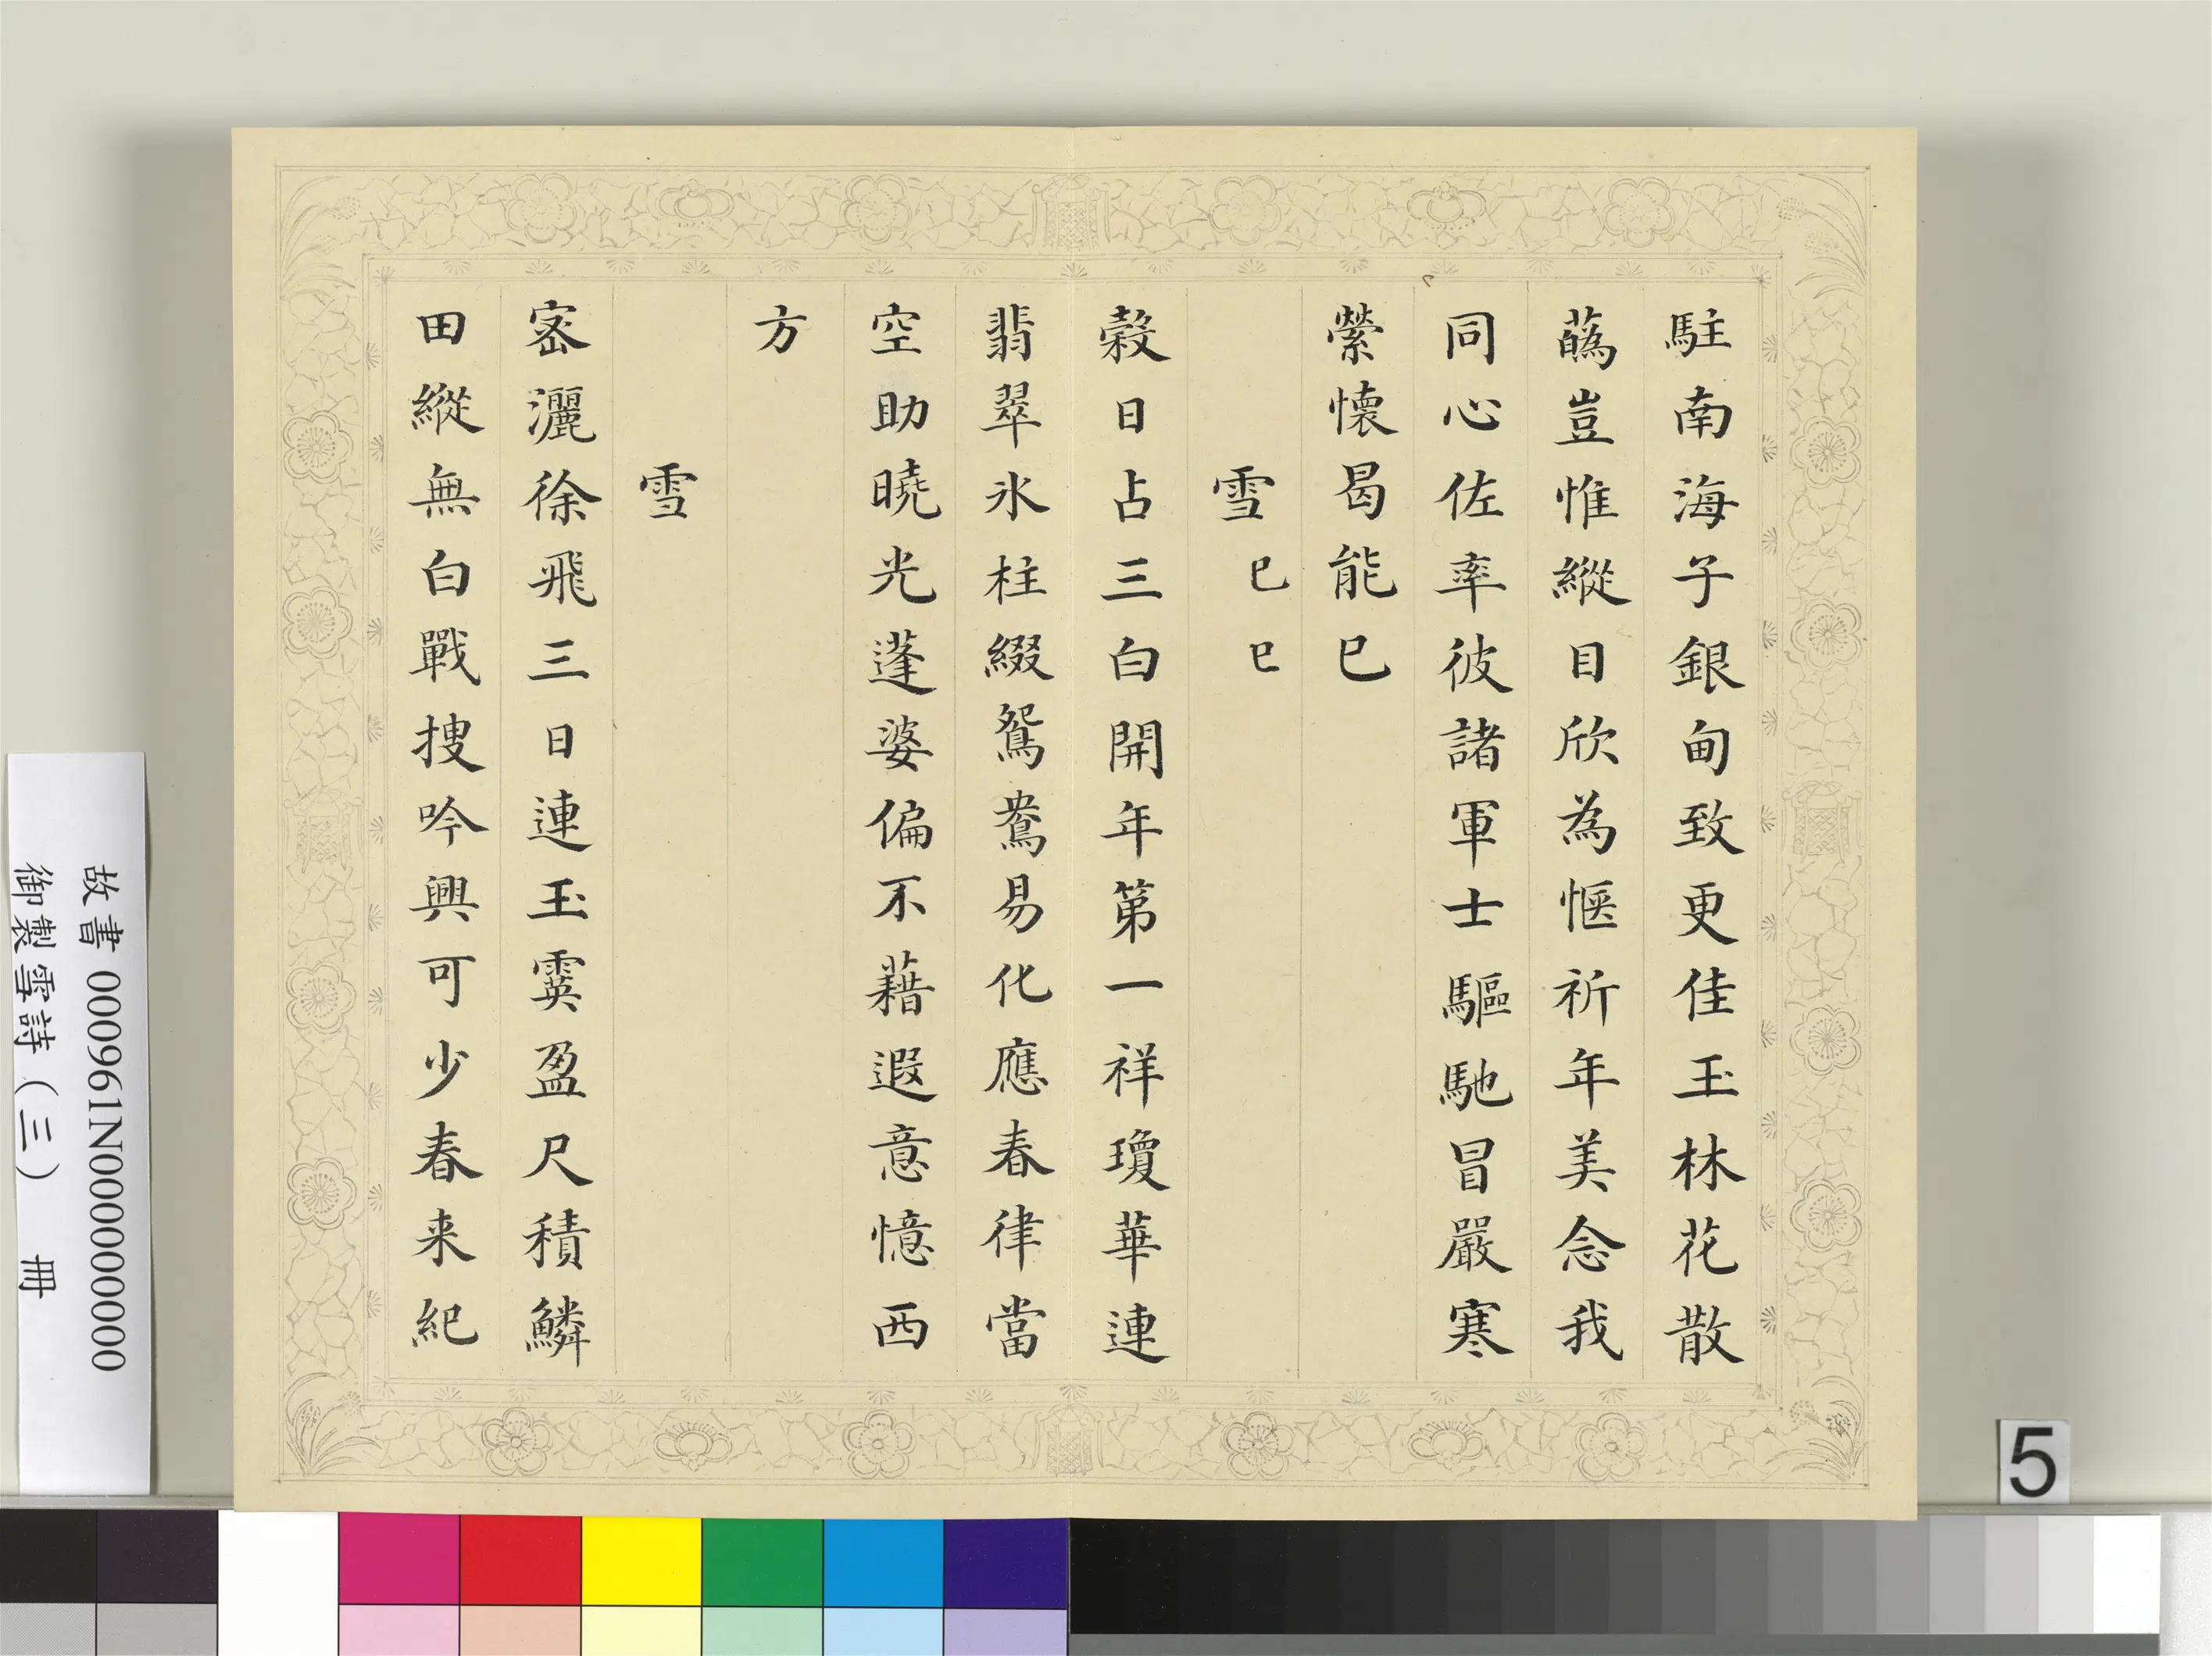 駐南海子銀甸致更佳玉林花散
蘤豈惟縱目欣為惬祈年美念我
同心佐率彼諸軍士驅馳冒嚴寒
縈懷曷能已
雪 己巳
穀日占三白開年第一祥瓊華連
翡翠氷柱綴鴛鴦易化應春律當
空助曉光蓬婆偏不藉遐意憶西
方
雪
宻灑徐飛三日連玉霙盈尺積鱗
田縱無白戰搜吟興可少春来紀
故書 000961N000000000
御製雪詩（三） 冊
5